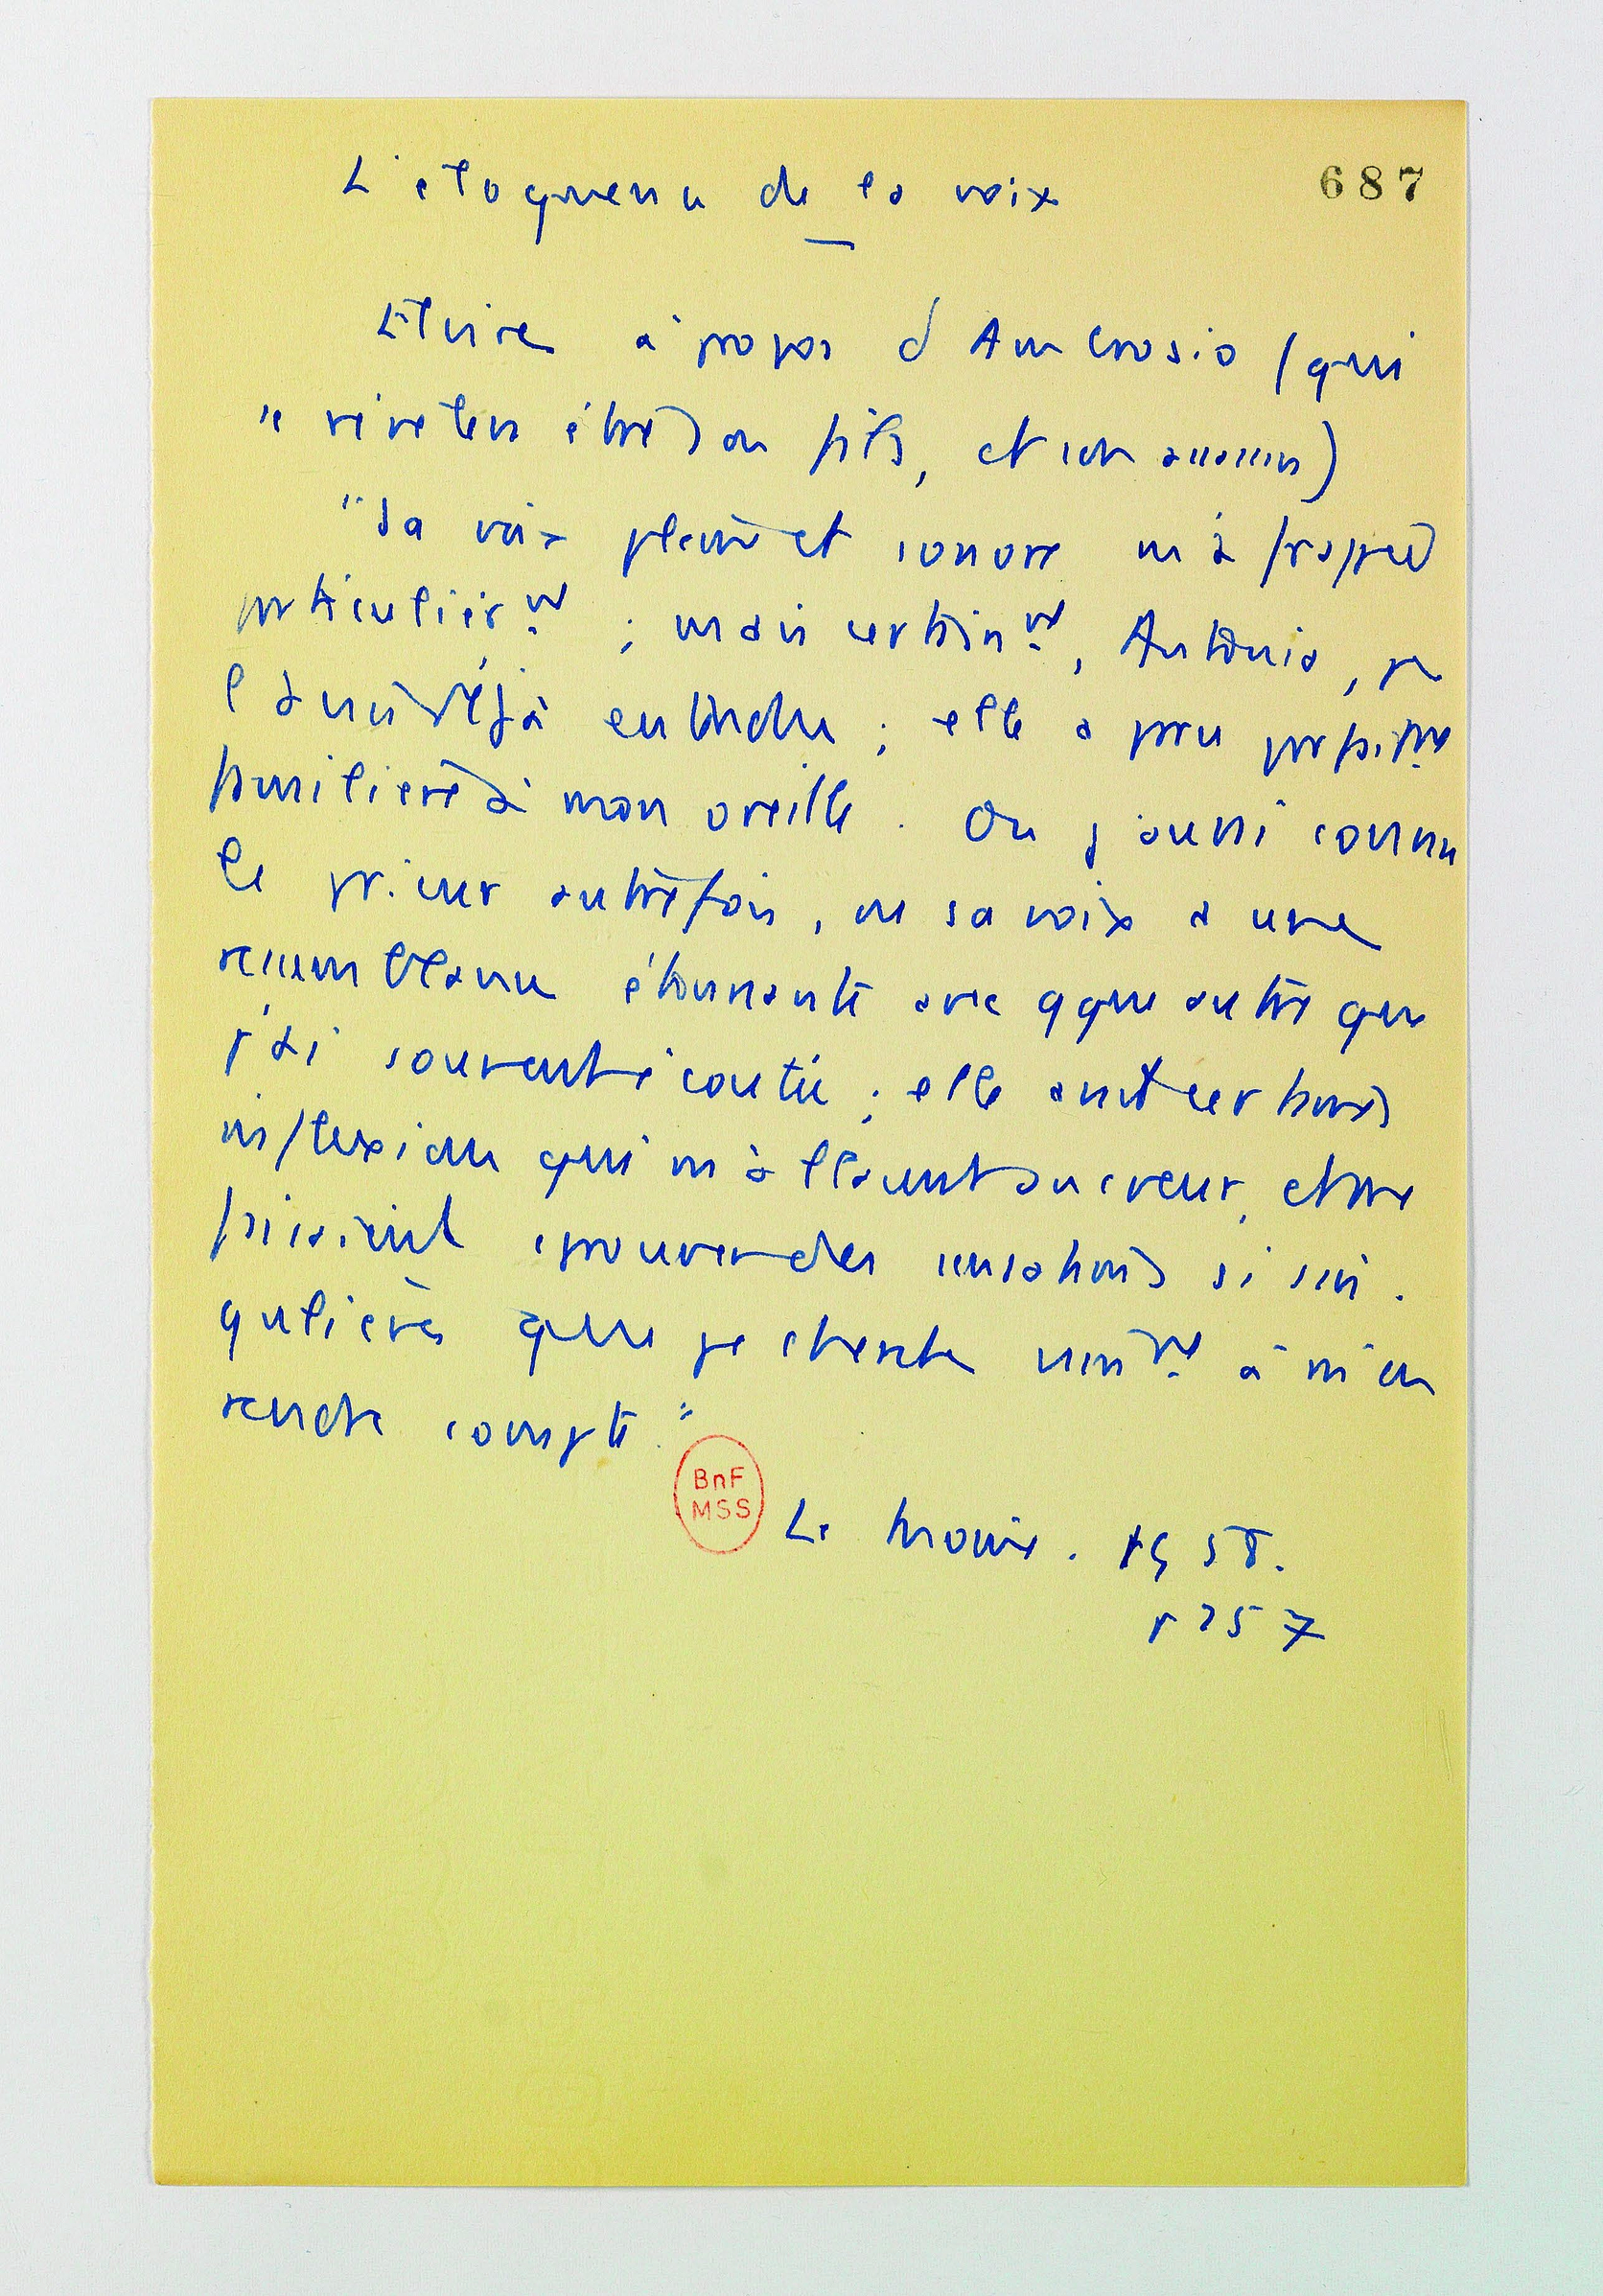 L'éloquence de la voix
687
Elvire à propos d'Ambrosio (qui
se révélera être son fils, et son assassin)
"Sa voix pleine et sonore m'a frappée
particulièr.nt ; mais certain.nt, Antonia, je
l'avais déjà entendue ; elle a paru parfait.nt
familière à mon oreille. Ou j'aurai connu
le prieur autrefois, ou sa voix a une
ressemblance étonnante avec qque autre que
j'ai souvent écoutée ; elle avait certaines
inflexions qui m'allaient au cœur, et me
faisaient éprouver des sensations si sin-
gulières que je cherche vain.nt à m'en
rendre compte."
BnF
MSS
Le Moine. 1958.
p 257